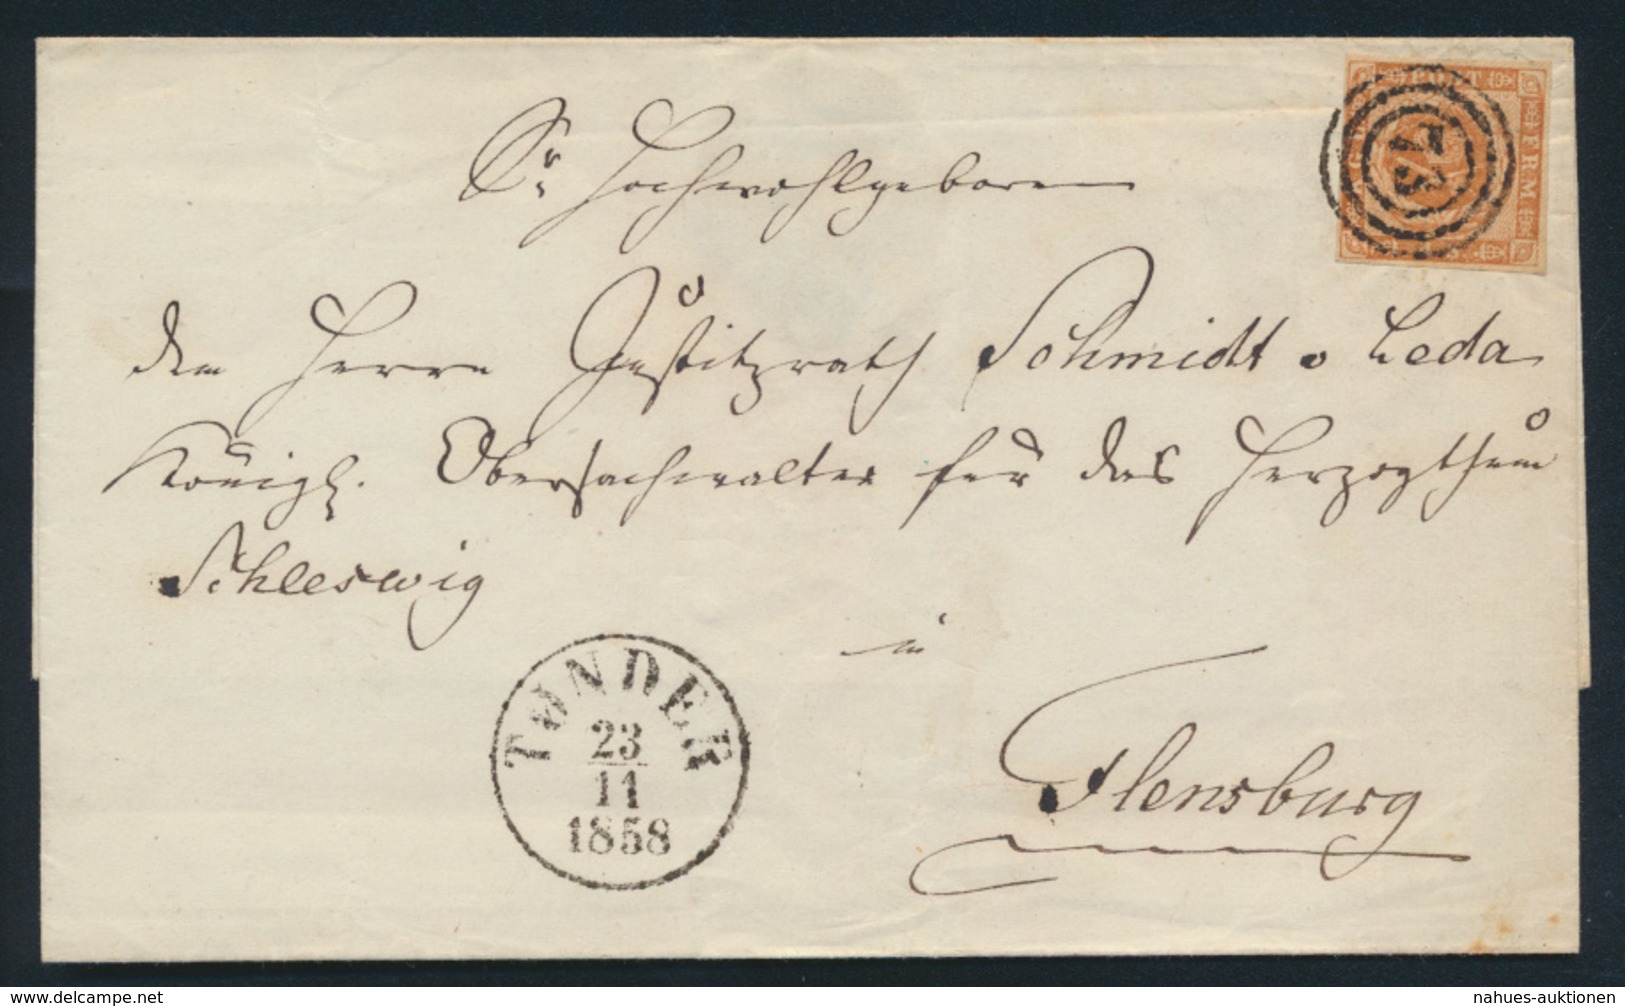 Sr Hochwohlgeboren
dem Herrn Justitzrath Schmidt v Leda
Königl. Obersachwalter für das Herzogthum
Schleswig
in
Flensburg
TØNDER
23
11
1858
POST
FRM
73
www.delcampe.net
nahues-auktionen